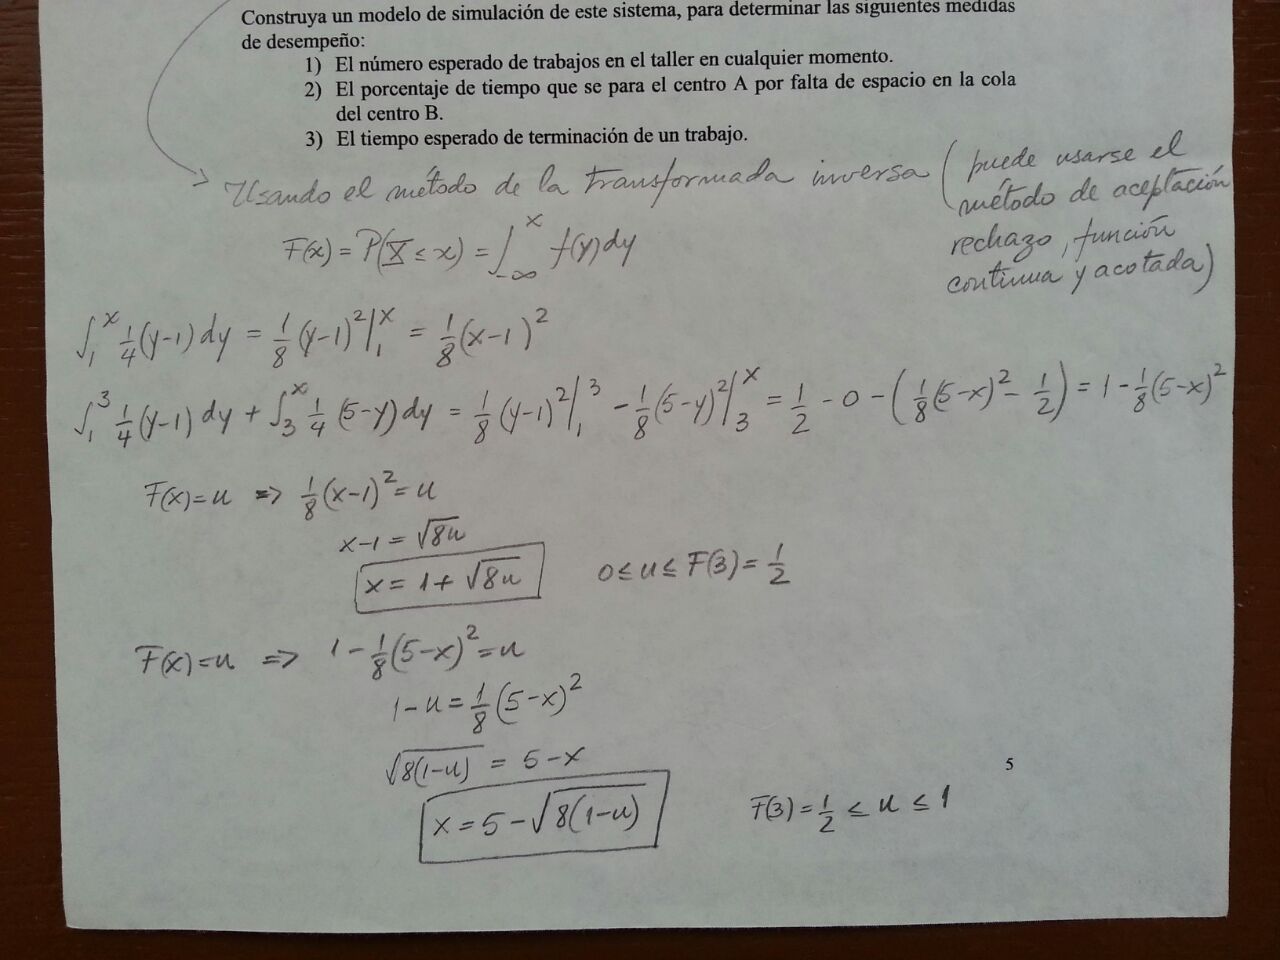 Construya un modelo de simulación de este sistema, para determinar las siguientes medidas
de desempeño:
1) El número esperado de trabajos en el taller en cualquier momento.
2) El porcentaje de tiempo que se para el centro A por falta de espacio en la cola
del centro B.
3) El tiempo esperado de terminación de un trabajo.
Usando el método de la transformada inversa (puede usarse el
método de aceptación
rechazo, función
continua y acotada)
F(x) = P(X ≤ x) = ∫_{-∞}^{x} f(y)dy
∫_1^x 1/4 (y-1) dy = 1/8 (y-1)^2 |_1^x = 1/8 (x-1)^2
∫_1^3 1/4 (y-1) dy + ∫_3^x 1/4 (5-y) dy = 1/8 (y-1)^2 |_1^3 - 1/8 (5-y)^2 |_3^x = 1/2 - 0 - (1/8 (5-x)^2 - 1/2) = 1 - 1/8 (5-x)^2
F(x) = u ⇒ 1/8 (x-1)^2 = u
x-1 = √8u
x = 1 + √8u 0 ≤ u ≤ F(3) = 1/2
F(x) = u ⇒ 1 - 1/8 (5-x)^2 = u
1-u = 1/8 (5-x)^2
√8(1-u) = 5-x
5
x = 5 - √8(1-u) F(3) = 1/2 ≤ u ≤ 1